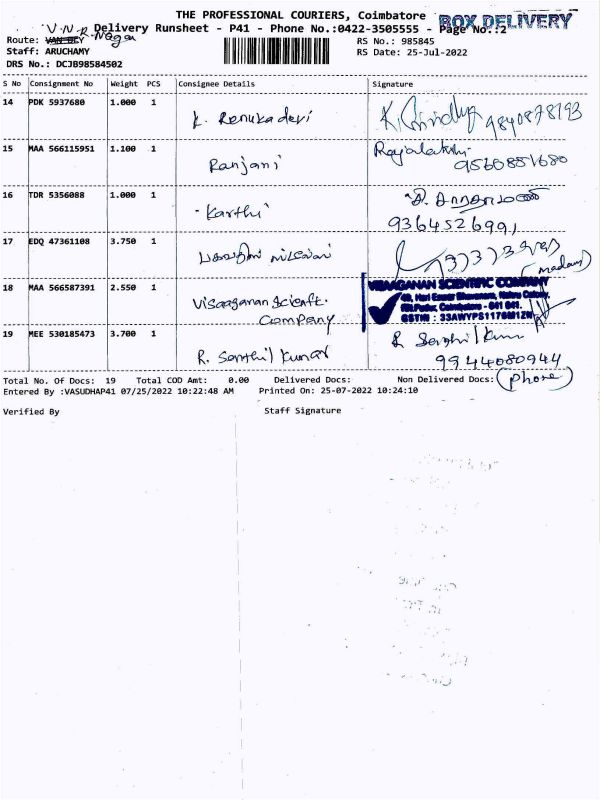 THE PROFESSIONAL COURIERS, Coimbatore
BOX DELIVERY
V.N.R. Nagar
Delivery Runsheet - P41 - Phone No.:0422-3505555 - Page No.:2
Route:
RS No.: 985845
Staff: ARUCHAMY
RS Date: 25-Jul-2022
DRS No.: DCJB98584502
S No Consignment No Weight PCS Consignee Details Signature
14 PDK 5937680 1.000 1 K. Renuka devi 9840878193
15 MAA 566115951 1.100 1 Ranjani Rajalakshmi 9560851680
16 TDR 5356088 1.000 1 Karthi 9364526991
17 EDQ 47361108 3.750 1
(madam)
18 MAA 566587391 2.550 1 Visaaganan Scientt. Company
VISAAGANAN SCIENTIFIC COMPANY
Coimbatore - 641 041.
GSTIN : 33AWYPS1176M1ZN
19 MEE 530185473 3.700 1 R. Senthil Kumar R Senthil Kumar
9944080944
(phone)
Total No. Of Docs: 19 Total COD Amt: 0.00 Delivered Docs: Non Delivered Docs:
Entered By :VASUDHAP41 07/25/2022 10:22:48 AM Printed On: 25-07-2022 10:24:10
Verified By Staff Signature